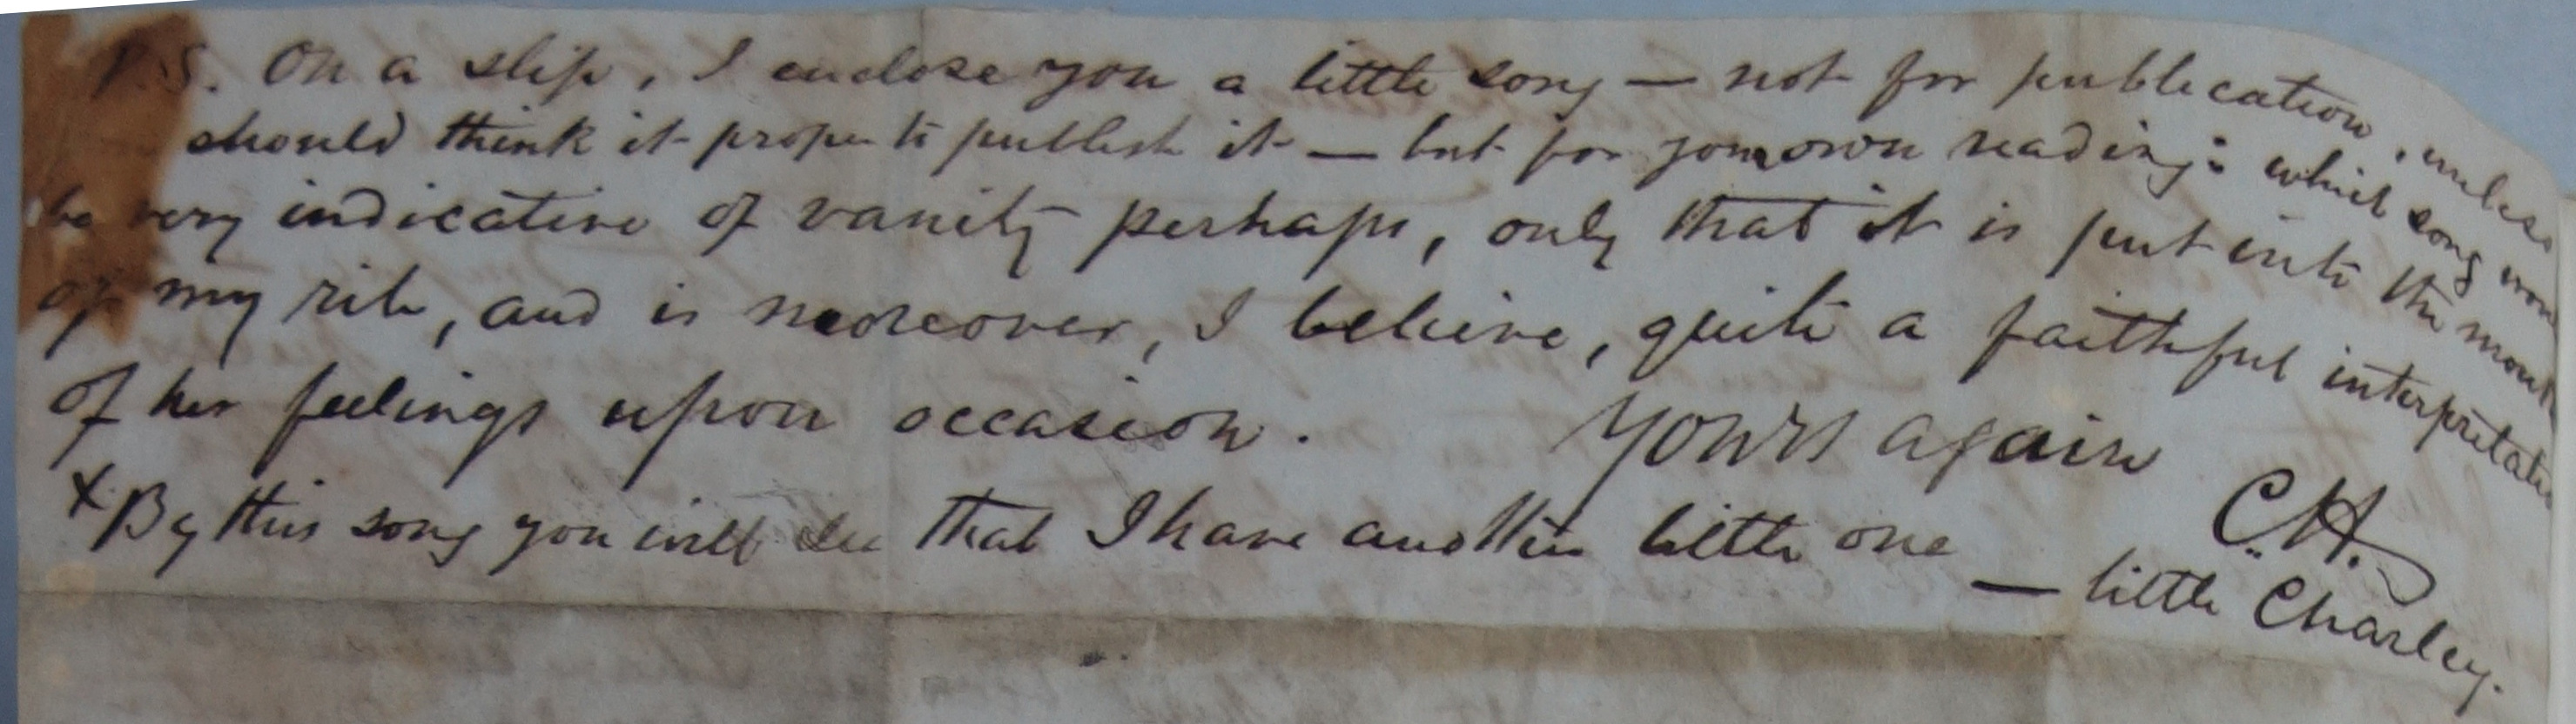 P.S. On a slip, I enclose you a little song — not for publication, unless
should think it proper to publish it — but for your own reading: which song woul
be very indicative of vanity perhaps, only that it is put into the mouth
of my rib, and is moreover, I believe, quite a faithful interpretatio
of her feelings upon occasion. Yours again
C.H.
x By this song you will see that I have another little one — little Charley.